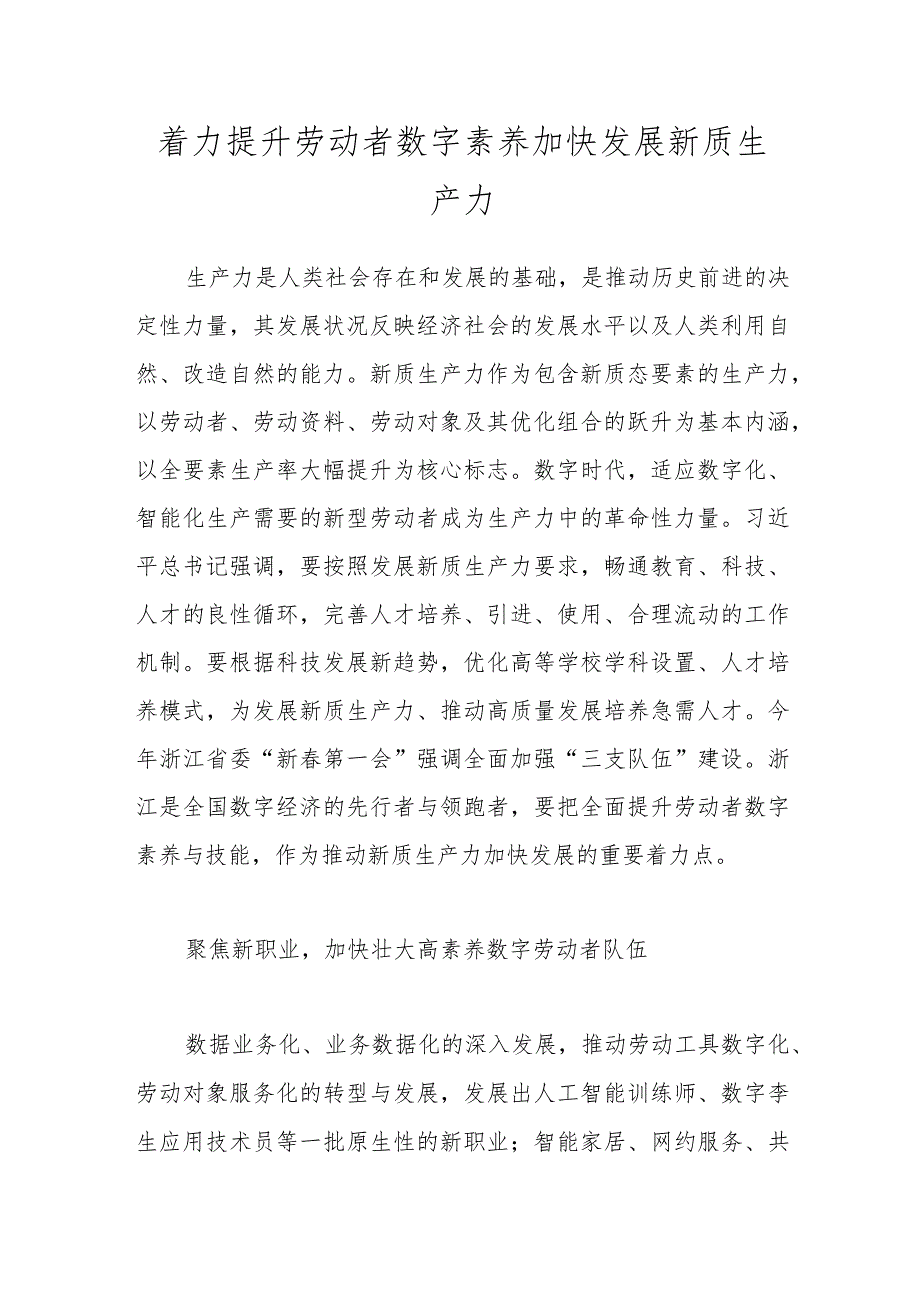 着力提升劳动者数字素养加快发展新质生
产力
生产力是人类社会存在和发展的基础，是推动历史前进的决
定性力量，其发展状况反映经济社会的发展水平以及人类利用自
然、改造自然的能力。新质生产力作为包含新质态要素的生产力，
以劳动者、劳动资料、劳动对象及其优化组合的跃升为基本内涵，
以全要素生产率大幅提升为核心标志。数字时代，适应数字化、
智能化生产需要的新型劳动者成为生产力中的革命性力量。习近
平总书记强调，要按照发展新质生产力要求，畅通教育、科技、
人才的良性循环，完善人才培养、引进、使用、合理流动的工作
机制。要根据科技发展新趋势，优化高等学校学科设置、人才培
养模式，为发展新质生产力、推动高质量发展培养急需人才。今
年浙江省委“新春第一会”强调全面加强“三支队伍”建设。浙
江是全国数字经济的先行者与领跑者，要把全面提升劳动者数字
素养与技能，作为推动新质生产力加快发展的重要着力点。
聚焦新职业，加快壮大高素养数字劳动者队伍
数据业务化、业务数据化的深入发展，推动劳动工具数字化、
劳动对象服务化的转型与发展，发展出人工智能训练师、数字李
生应用技术员等一批原生性的新职业；智能家居、网约服务、共